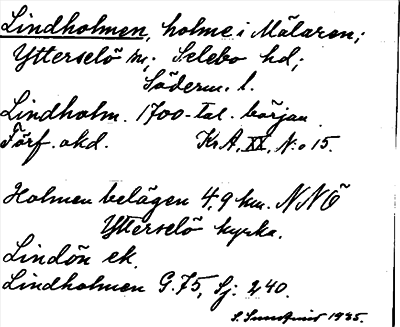 Lindholmen, holme i Mälaren;
Ytterselö sn; Selebo hd;
Söderm. l.
Lindholm. 1700-tal. början.
Förf. okd. KrA, XX, N:o 15.
Holmen belägen 4,9 km. NNÖ
Ytterselö kyrka.
Lindön ek.
Lindholmen G.75, Sj: 240.
S. 1935.